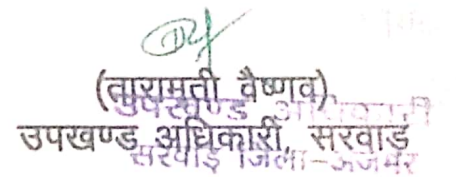 (तारामती वैष्णव)
उपखण्ड अधिकारी
उपखण्ड अधिकारी, सरवाड
सरवाड़ जिला-अजमेर